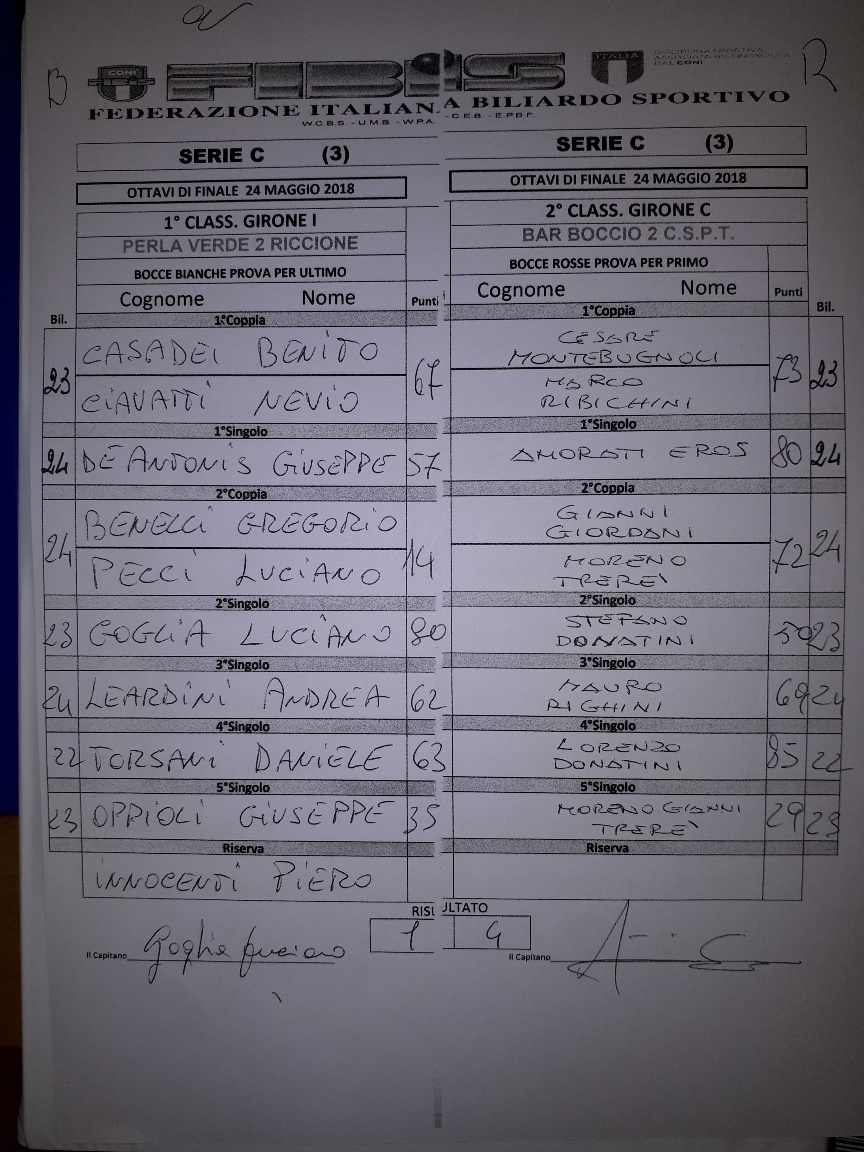 B
R
CONI
FIBIS
ITALIA
DISCIPLINA SPORTIVA
ASSOCIATA RICONOSCIUTA
DAL CONI
FEDERAZIONE ITALIANA BILIARDO SPORTIVO
W.C.B.S. - U.M.B. - W.P.A. - C.E.B. - E.P.B.F.
SERIE C (3)
OTTAVI DI FINALE 24 MAGGIO 2018
1° CLASS. GIRONE I
PERLA VERDE 2 RICCIONE
BOCCE BIANCHE PROVA PER ULTIMO
Cognome Nome Punti
Bil.
1°Coppia
23 CASADEI BENITO 67
CIAVATTI NEVIO
1°Singolo
24 DE ANTONIS GIUSEPPE 57
2°Coppia
24 BENELLI GREGORIO 14
PECCI LUCIANO
2°Singolo
23 GOGLIA LUCIANO 80
3°Singolo
24 LEARDINI ANDREA 62
4°Singolo
22 TORSANI DANIELE 63
5°Singolo
23 OPPIOLI GIUSEPPE 35
Riserva
INNOCENTI PIERO
SERIE C (3)
OTTAVI DI FINALE 24 MAGGIO 2018
2° CLASS. GIRONE C
BAR BOCCIO 2 C.S.P.T.
BOCCE ROSSE PROVA PER PRIMO
Cognome Nome Punti
Bil.
1°Coppia
CESARE
MONTEBUGNOLI 73 23
MARCO
RIBICHINI
1°Singolo
AMORATI EROS 80 24
2°Coppia
GIANNI
GIORDANI 72 24
MORENO
TRERE'
2°Singolo
STEFANO
DONATINI 50 23
3°Singolo
MAURO
RIGHINI 69 24
4°Singolo
LORENZO
DONATINI 85 22
5°Singolo
MORENO GIANNI
TRERE' 29 23
Riserva
RISULTATO
1 4
Il Capitano Goglia Luciano
Il Capitano